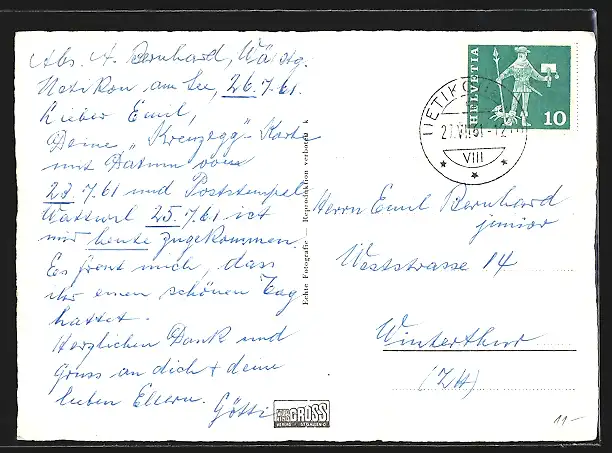 Abs. A. Bernhard, Wä stg.
Uetikon am See, 26.7.61.
Lieber Emil,
Deine „Kreuzegg"-Karte
mit Datum vom
23.7.61 und Poststempel
Wattwil 25.7.61 ist
mir heute zugekommen
Es freut mich, dass
ihr einen schönen Tag
hattet.
Herzlichen Dank und
Gruss an dich + deine
lieben Eltern. Götti
Echte Fotografie — Reproduktion verboten k
GROSS
HELVETIA
10
27.VII.61-12
VIII
Herrn Emil Bernhard
junior
Weststrasse 14
Winterthur
(ZH)
11.-